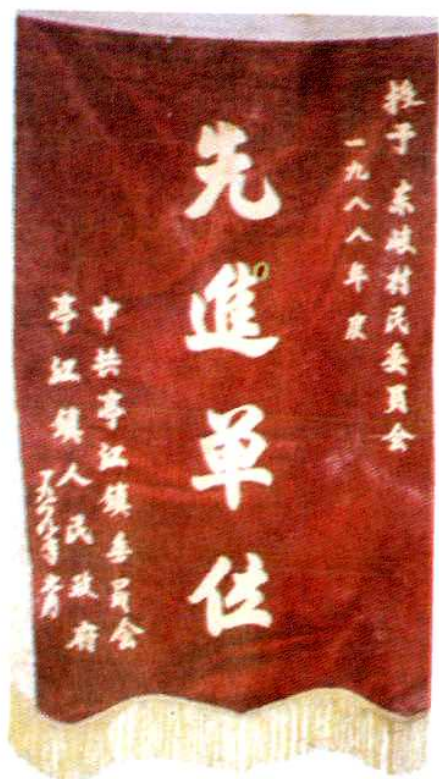 授于 东岐村民委员会
一九八八年度
先進单位
中共亭江镇委员会
亭江镇人民政府
一九八九年